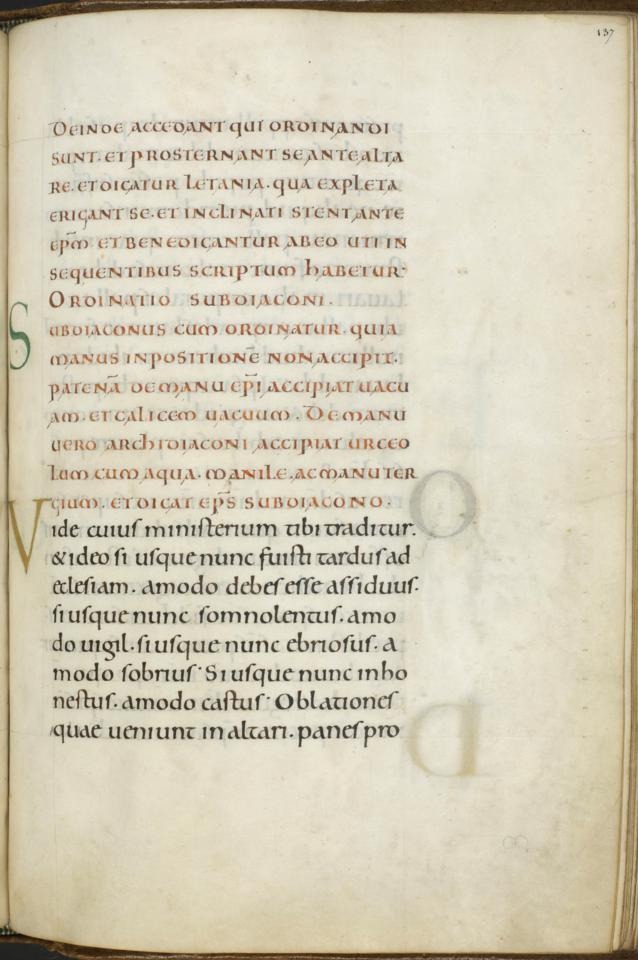 137
Deinde accedant qui ordinandi
sunt. et prosternant se ante alta
re. et dicatur letania. qua expleta
erigant se. et inclinati stent ante
epm̄ et benedicantur ab eo uti in
sequentibus scriptum habetur.
Ordinatio subdiaconi.
Subdiaconus cum ordinatur. quia
manus inpositionē non accipit.
patenā de manu epi̅ accipiat uacu
am. et calicem uacuum. De manu
uero archidiaconi accipiat urceo
lum cum aqua. manile. ac manuter
gium. et dicat ep̅s subdiacono.
Vide cuius ministerium tibi traditur.
& ideo si usque nunc fuisti tardus ad
eclesiam. amodo debes esse assiduus.
si usque nunc somnolentus. amo
do uigil. si usque nunc ebriosus. a
modo sobrius. Si usque nunc inho
nestus. amodo castus. Oblationes
quae ueniunt in altari. panes pro